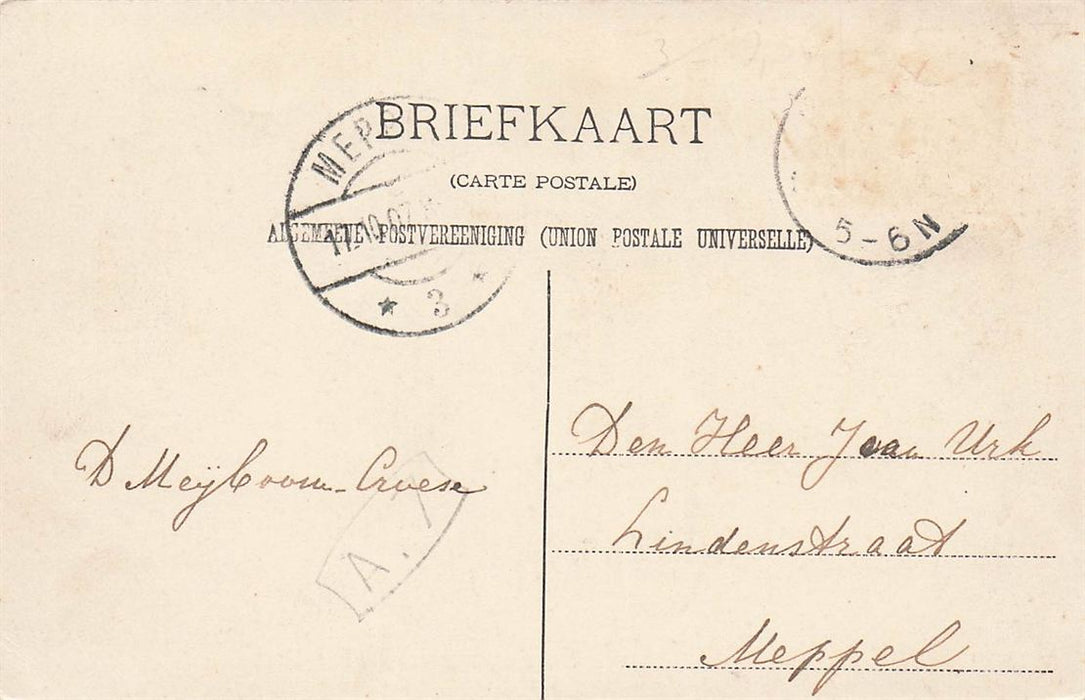 BRIEFKAART
(CARTE POSTALE)
ALGEMEENE POSTVEREENIGING (UNION POSTALE UNIVERSELLE)
MEP
17.10.07
* 3 *
5-6N
D Meijboom-Croese
Den Heer J van Urk
Lindenstraat
Meppel
A.